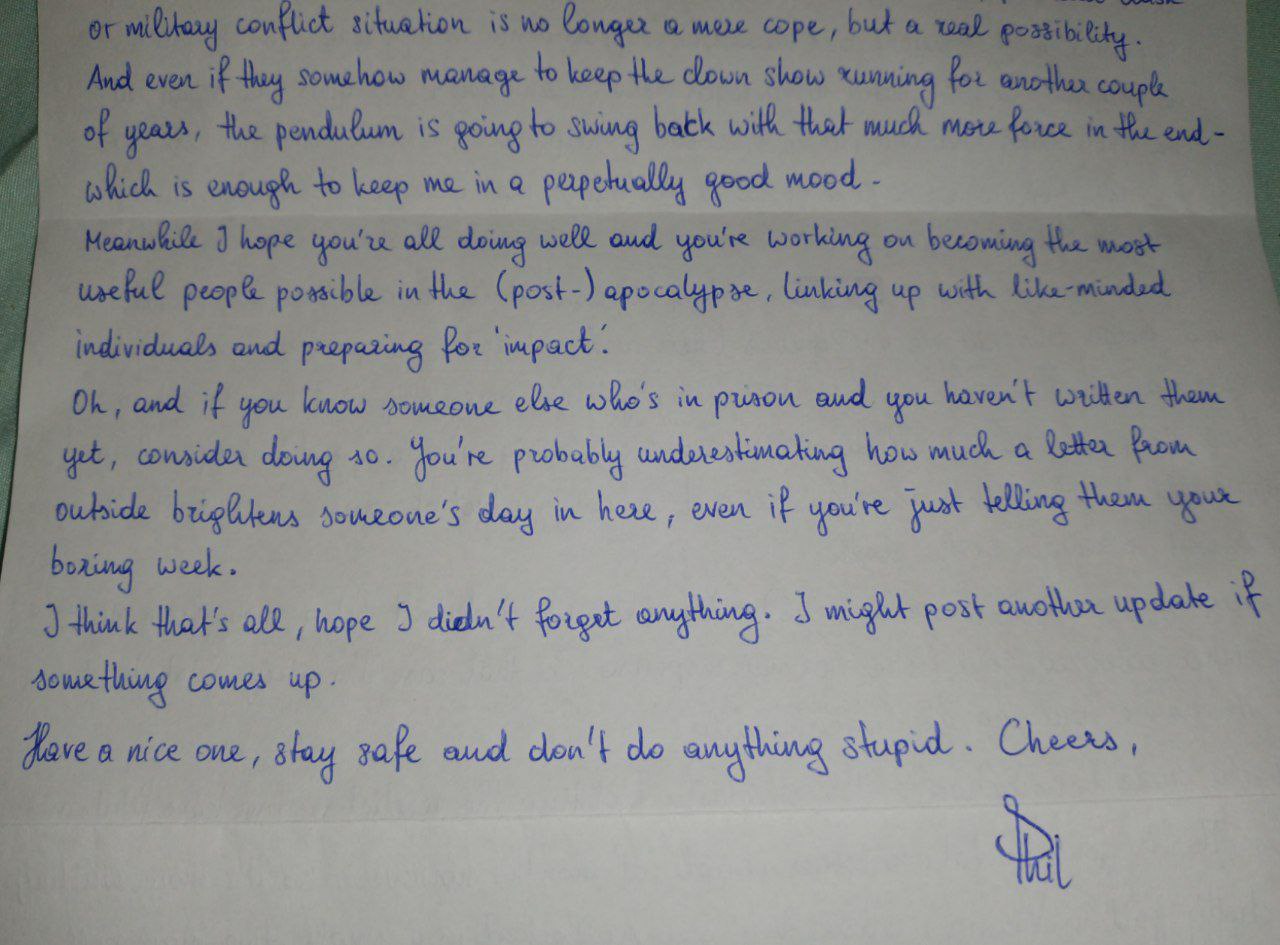 or military conflict situation is no longer a mere cope, but a real possibility.
And even if they somehow manage to keep the clown show running for another couple
of years, the pendulum is going to swing back with that much more force in the end -
which is enough to keep me in a perpetually good mood.
Meanwhile I hope you're all doing well and you're working on becoming the most
useful people possible in the (post-) apocalypse, linking up with like-minded
individuals and preparing for 'impact'.
Oh, and if you know someone else who's in prison and you haven't written them
yet, consider doing so. You're probably underestimating how much a letter from
outside brightens someone's day in here, even if you're just telling them your
boring week.
I think that's all, hope I didn't forget anything. I might post another update if
something comes up.
Have a nice one, stay safe and don't do anything stupid. Cheers,
Phil